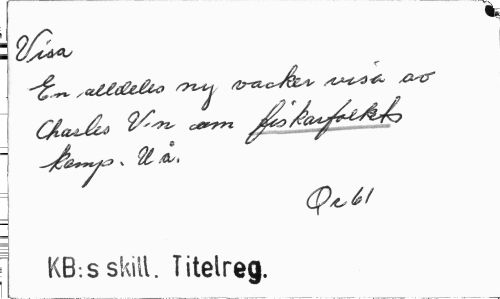 Visa
En alldeles ny vacker visa av
Charles V-n om fiskarfolkets
kamp. U å.
Qr 61
KB:s skill. Titelreg.